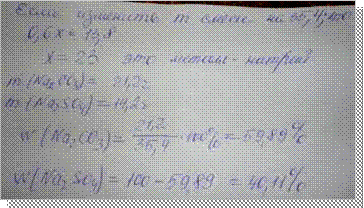 Если изменить m смеси на 35,4, то
0,6x = 13,8
x = 23 это металл - натрий
m(Na₂CO₃) = 21,2г
m(Na₂SO₄) = 14,2г
w(Na₂CO₃) = 21,2/35,4 · 100% = 59,89%
w(Na₂SO₄) = 100 - 59,89 = 40,11%